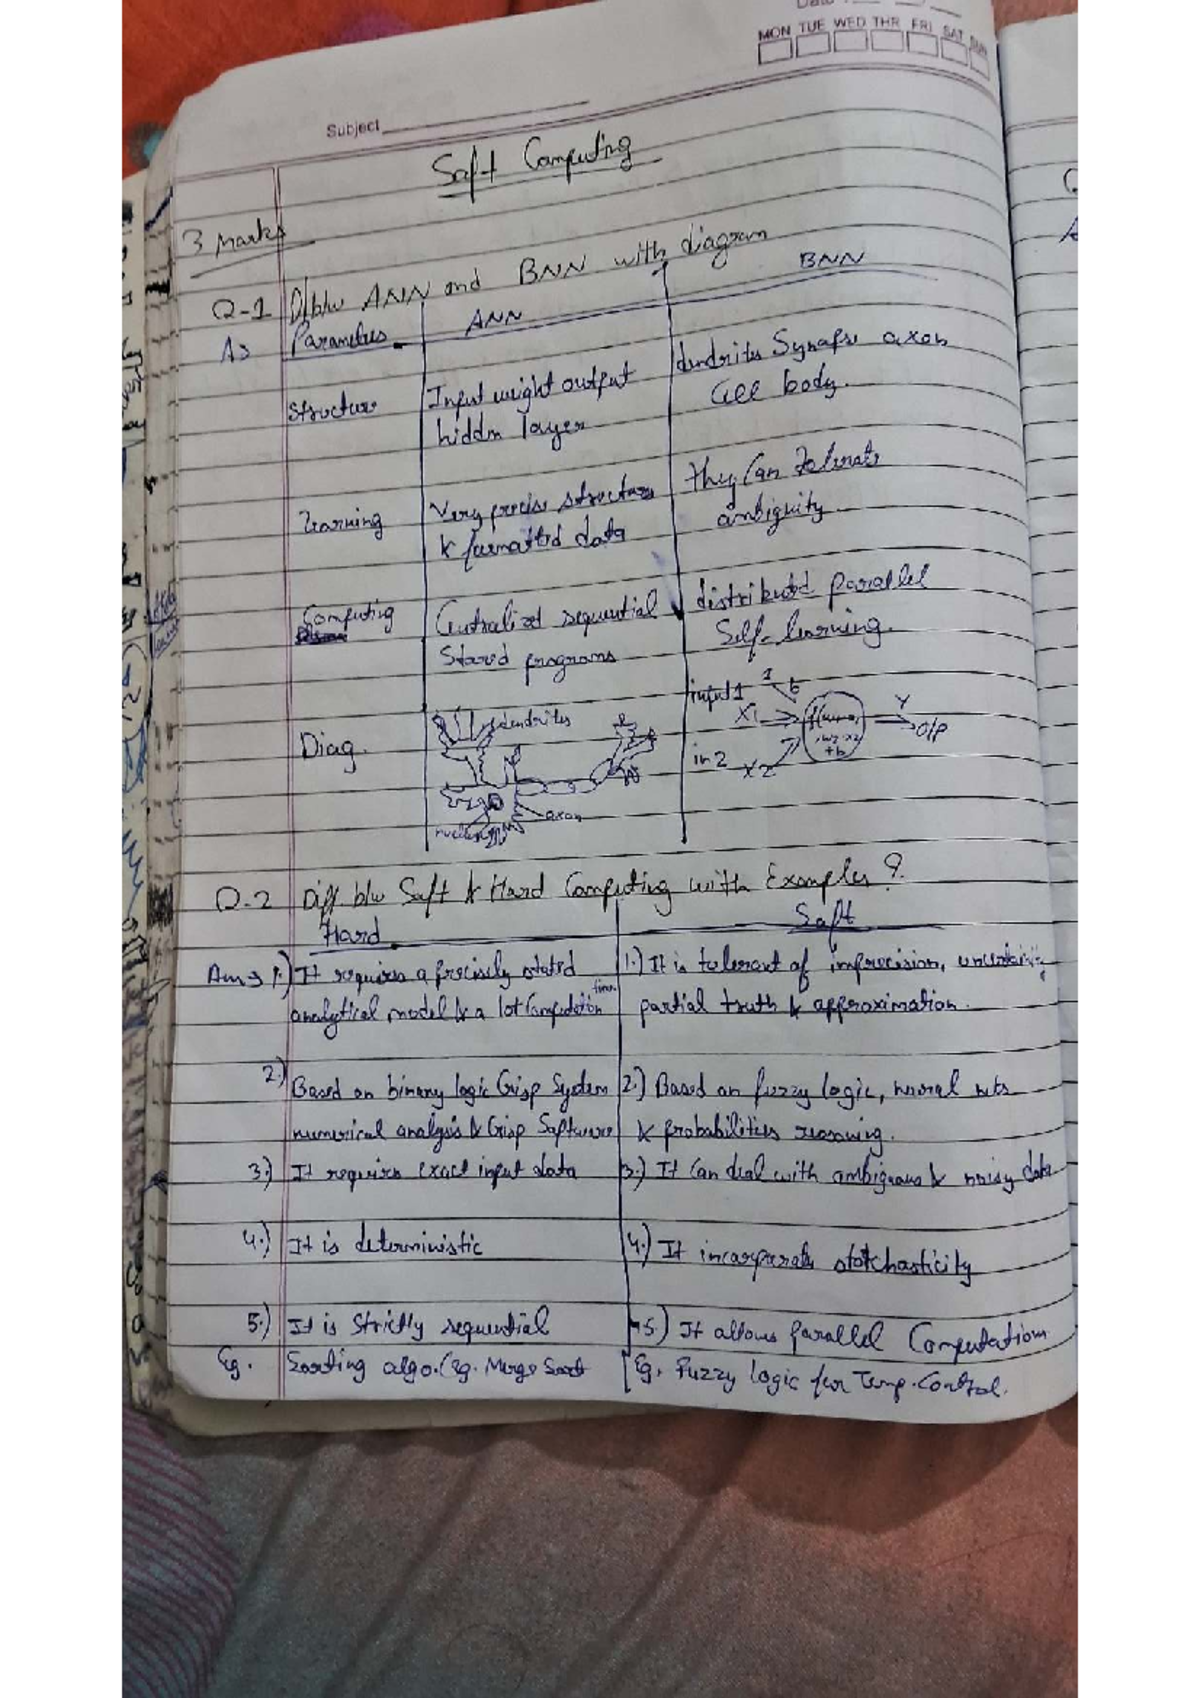 Date
MON TUE WED THR FRI SAT SUN
Subject
Soft Computing
3 Marks
Q-1 D/b/w ANN and BNN with diagram
A→ Parameters ANN BNN
Structure Input weight output dendrites Synapse axon
hidden layer Cell body.
Learning Very precise structure they Can tolerate
& formatted data ambiguity
Computing Centralized sequential distributed parallel
Stored programs Self-learning.
Diag. dendrites input1 1 b
X1 Y O/P
in2 X2 +b
nucleus axon
Q-2 Diff. b/w Soft & Hard Computing with Examples?
Hard Soft
Ans→ 1.) It requires a precisely stated 1.) It is tolerant of imprecision, uncertainity
analytical model & a lot Computation time partial truth & approximation.
2.) Based on binary logic Crisp System 2.) Based on fuzzy logic, neural nets
numerical analysis & Crisp Software & probabilities reasoning.
3.) It requires exact input data 3.) It Can deal with ambiguous & noisy data
4.) It is deterministic 4.) It incorporate stotchasticity
5.) It is Strictly sequential 5.) It allows parallel Computation
Eg. Sorting algo. (Eg. Merge Sort Eg. Fuzzy logic for Temp. Control.